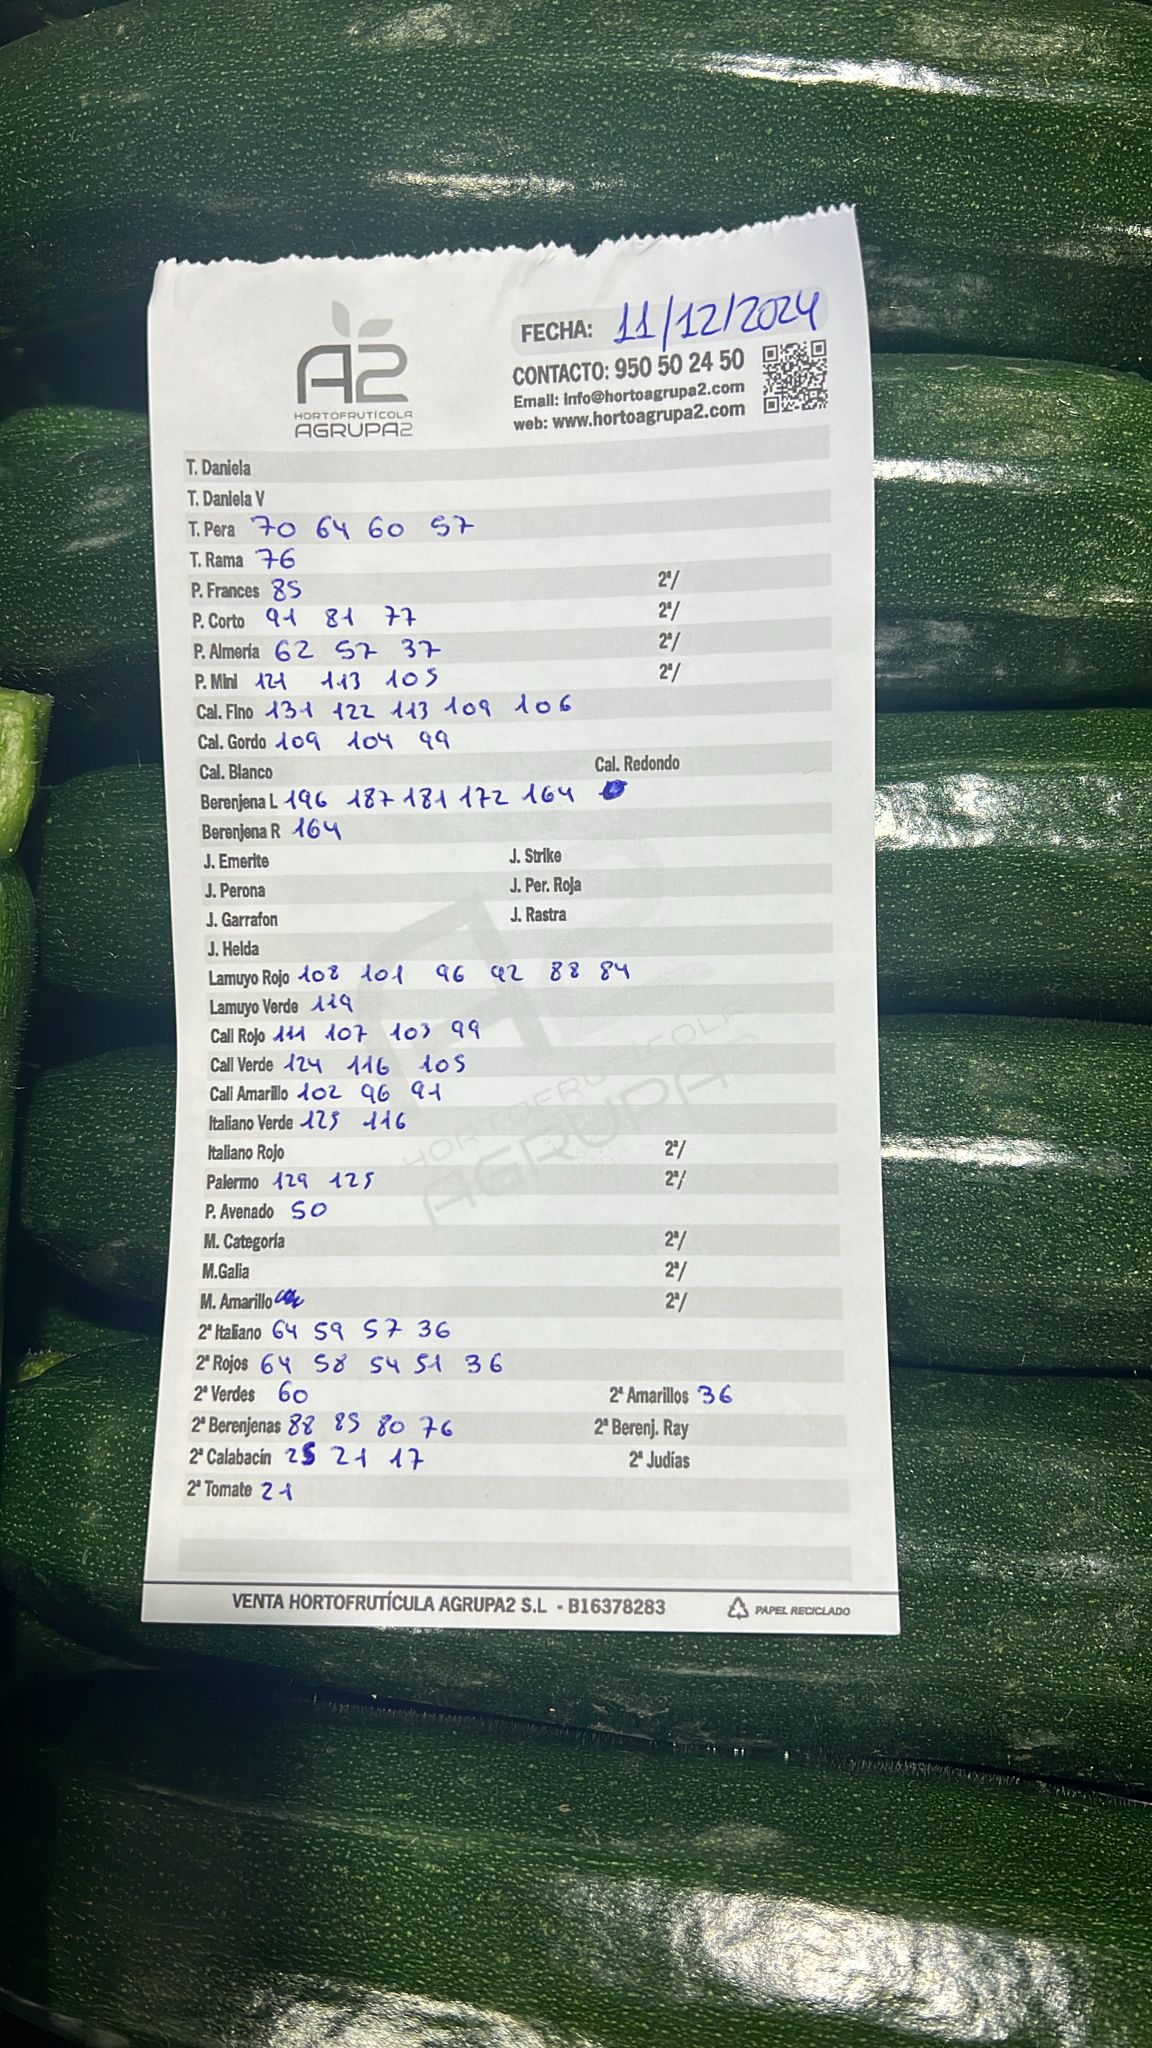 A2
HORTOFRUTÍCOLA
AGRUPA2
FECHA: 11/12/2024
CONTACTO: 950 50 24 50
Email: Info@hortoagrupa2.com
web: www.hortoagrupa2.com
T. Daniela
T. Daniela V
T. Pera 70 64 60 57
T. Rama 76
P. Frances 85 2ª/
P. Corto 91 81 77 2ª/
P. Almería 62 57 37 2ª/
P. Mini 121 113 105 2ª/
Cal. Fino 131 122 113 109 106
Cal. Gordo 109 104 99
Cal. Blanco Cal. Redondo
Berenjena L 196 187 181 172 164
Berenjena R 164
J. Emerite J. Strike
J. Perona J. Per. Roja
J. Garrafon J. Rastra
J. Helda
Lamuyo Rojo 108 101 96 92 88 84
Lamuyo Verde 119
Cali Rojo 111 107 103 99
Cali Verde 124 116 105
Cali Amarillo 102 96 91
Italiano Verde 125 116
Italiano Rojo 2ª/
Palermo 129 125 2ª/
P. Avenado 50
M. Categoría 2ª/
M.Galia 2ª/
M. Amarillo 2ª/
2ª Italiano 64 59 57 36
2ª Rojos 64 58 54 51 36
2ª Verdes 60 2ª Amarillos 36
2ª Berenjenas 88 85 80 76 2ª Berenj. Ray
2ª Calabacín 25 21 17 2ª Judías
2ª Tomate 21
VENTA HORTOFRUTÍCULA AGRUPA2 S.L - B16378283 PAPEL RECICLADO